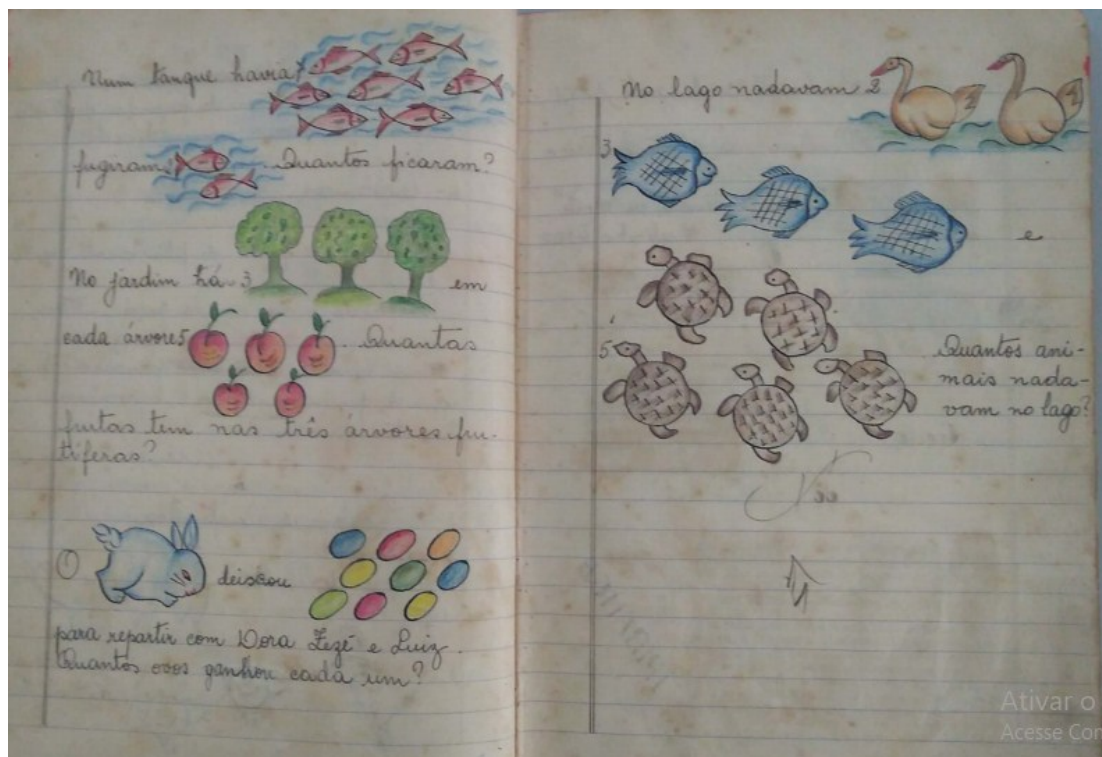 Num tanque havia 7
fugiram 2 . Quantos ficaram?
No jardim há 3 em
cada árvore 5 . Quantas
frutas tem nas três árvores fru-
tíferas?
O deixou
para repartir com Dora Zezé e Luiz.
Quantos ovos ganhou cada um?
No lago nadavam 2
3 e
5 Quantos ani-
mais nada-
vam no lago?
Ativar o
Acesse Con